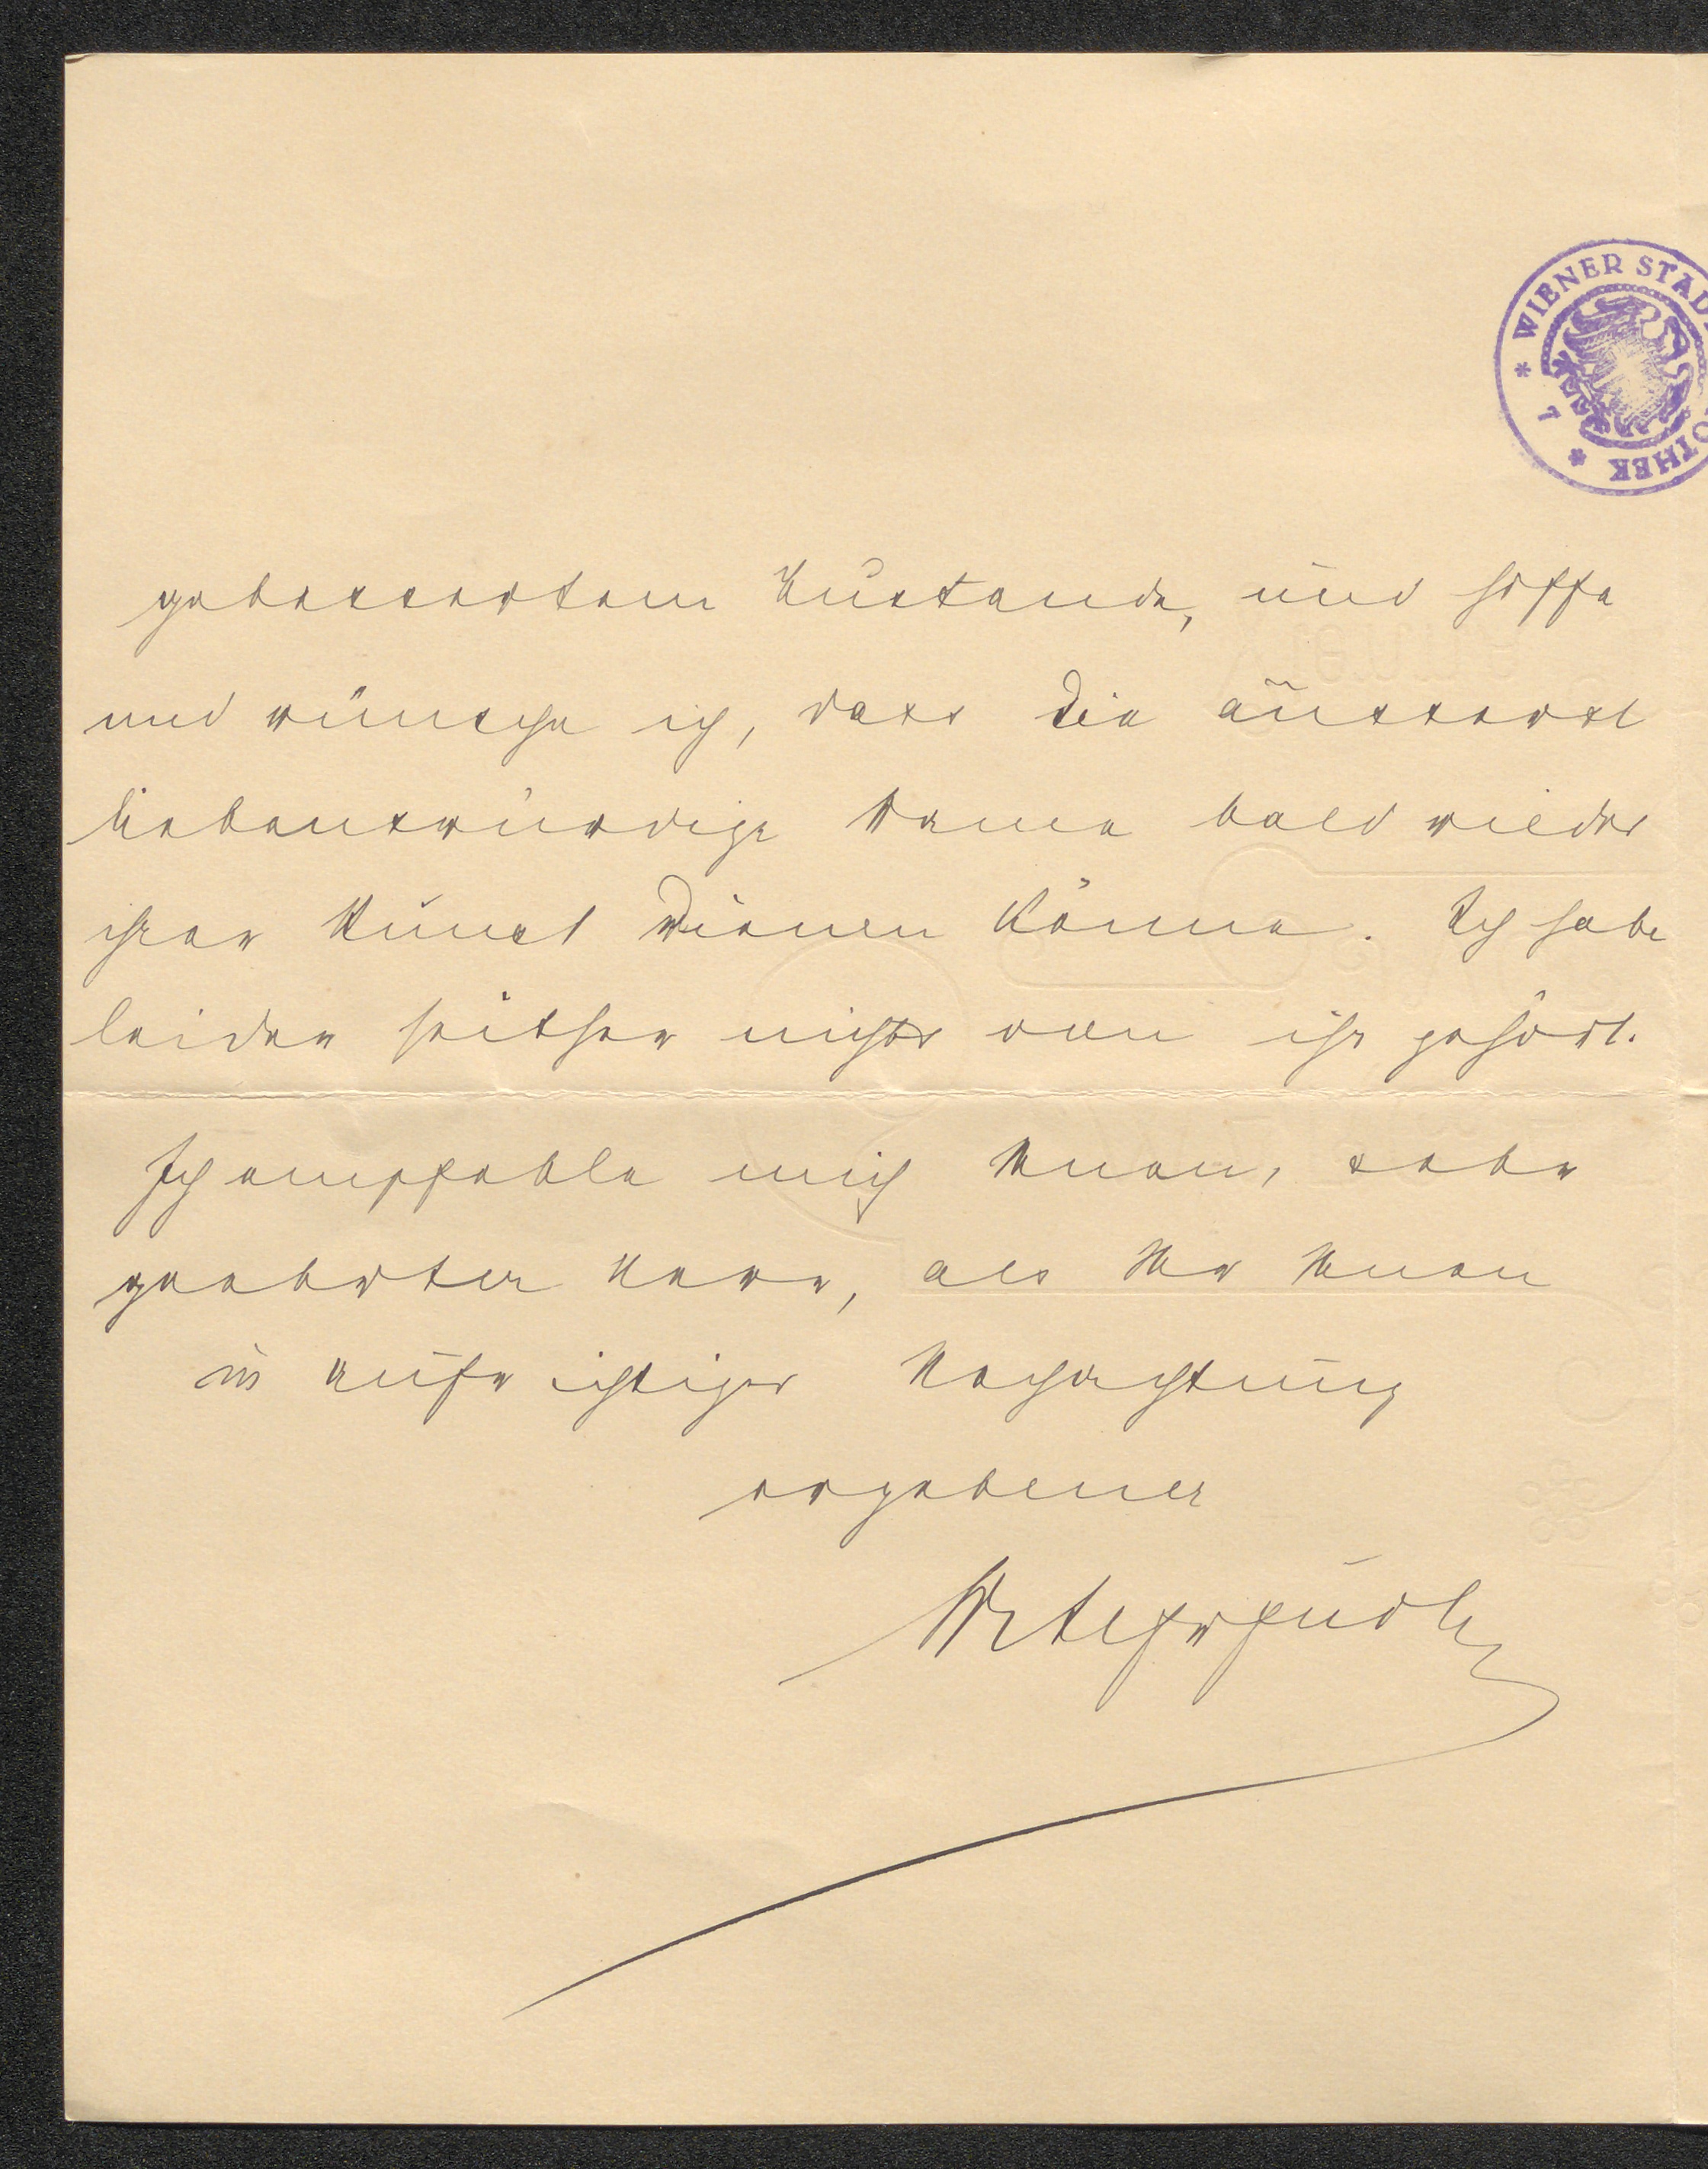 WIENER STAD
OTHEK
7
gebessertem Zustande, und hoffe
und wünsche ich, dass die äusserst
liebenswürdige Dame bald wieder
ihrer Kunst dienen könne. Ich habe
leider seither nichts von ihr gehört.
Ich empfehle mich Ihnen, sehr
geehrter Herr, als Ihr Ihnen
in aufrichtiger Hochachtung
ergebener